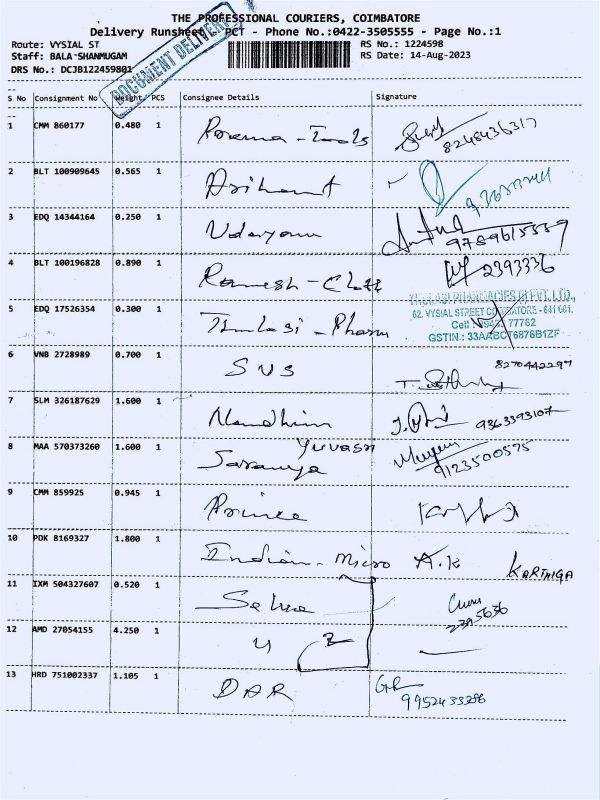 THE PROFESSIONAL COURIERS, COIMBATORE
Delivery Runsheet - PCT - Phone No.:0422-3505555 - Page No.:1
Route: VYSIAL ST RS No.: 1224598
Staff: BALA-SHANMUGAM RS Date: 14-Aug-2023
DRS No.: DCJB122459801
DOCUMENT DELIVERY
S No Consignment No Weight PCS Consignee Details Signature
1 CMM 860177 0.480 1 8248436317
2 BLT 100909645 0.565 1 Arihant
3 EDQ 14344164 0.250 1 Udayam 9789615539
4 BLT 100196828 0.890 1 Ramesh - 2393336
5 EDQ 17526354 0.300 1 Thulasi - Pharm
THULASI PHARMACIES (I) PVT. LTD.,
62, VYSIAL STREET COIMBATORE - 641 001.
Cell: 77762
GSTIN : 33AABCT6876B1ZF
6 VNB 2728989 0.700 1 SVS 8270442297
7 SLM 326187629 1.600 1 Nandhini 9363393107
8 MAA 570373260 1.600 1 Yuvasri Saranya 9123500575
9 CMM 859925 0.945 1 Prince
10 PDK 8169327 1.800 1 Indian - Micro A.K KARTHIGA
11 IXM 504327607 0.520 1 2395636
12 AMD 27054155 4.250 1 4 2
13 HRD 751002337 1.105 1 DAR GR 9952433286